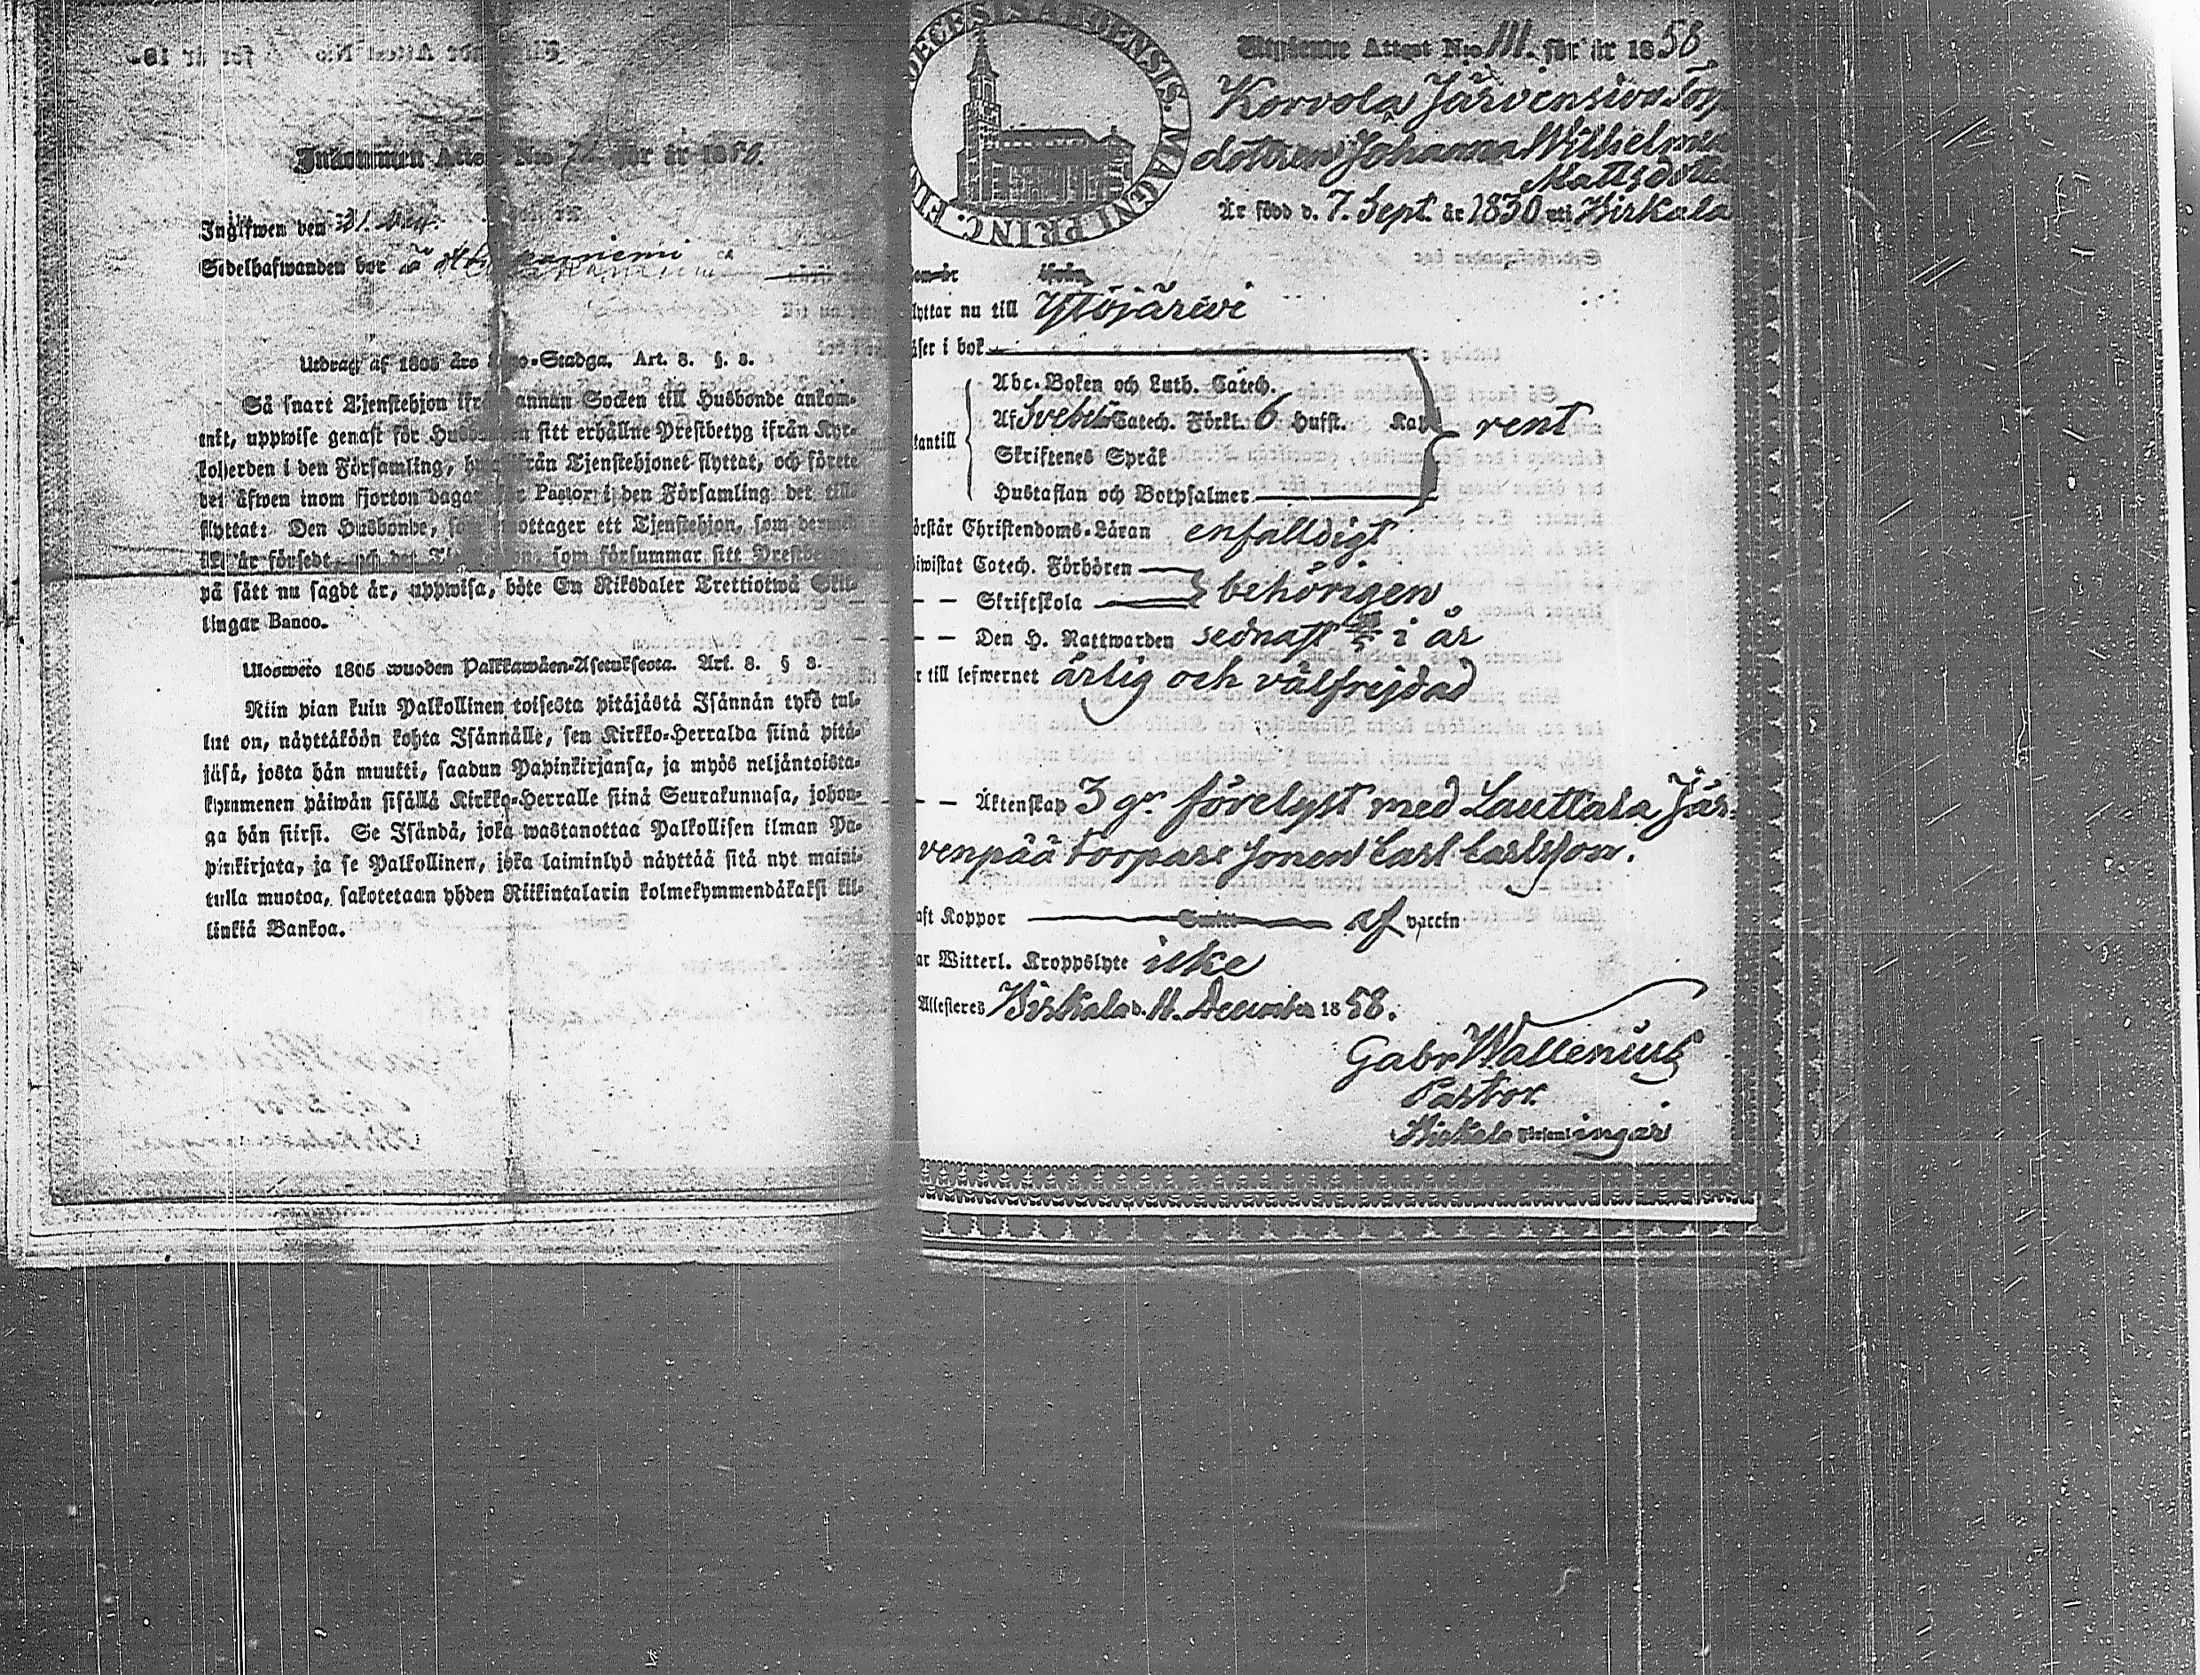 Inkommen Attest No 72 för år 1858.
Ingifwen den 31. Dec.
Sedelhafwanden bor å
Utdrag af 1805 års Lego-Stadga. Art. 8. §. 8.
Så snart Tjenstehjon ifrån annan Socken till Husbonde ankom-
mit, uppwise genast för Husbonden sitt erhållne Prestbetyg ifrån Kyr-
koherden i den Församling, hwarifrån Tjenstehjonet flyttat, och förete
det äfwen inom fjorton dagar för Pastor i den Församling det till-
flyttat: Den Husbonde, som emottager ett Tjenstehjon, som dermed
icke är försedt, och det Tjenstehjon, som försummar sitt Prestbetyg,
på sätt nu sagdt är, uppwisa, böte En Riksdaler Trettiotwå Skil-
lingar Banco.
Ulosweto 1805 wuoden Palkkawäen-Asetuksesta. Art. 8. § 8.
Niin pian kuin Palkollinen toisesta pitäjästä Isännän tykö tul-
lut on, näyttäköön kohta Isännälle, sen Kirkko-Herralda siinä pitä-
jäsä, josta hän muutti, saadun Papinkirjansa, ja myös neljäntoista-
kymmenen päiwän sisällä Kirkko-Herralle siinä Seurakunnasa, johon-
ga hän siirsi. Se Isändä, joka wastanottaa Palkollisen ilman Pa-
pinkirjata, ja se Palkollinen, joka laiminlyö näyttää sitä nyt maini-
tulla muotoa, sakotetaan yhden Riikintalarin kolmekymmendäkaksi kil-
linkiä Bankoa.
MAGNI PRINC.
Utgifwne Attest N:o 111. för år 1858
Korvola Järvensivu Torp
dottren Johanna Wilhelmina
Mattsdotter
Är född d. 7. Sept. år 1830 uti Birkala
ifrån
lyttar nu till Ylöjärvi
äser i bok
Abc-Boken och Luth. Catech.
Af Svebelii Catech. Förkl. 6 Hufst. Kap. rent
tantill
Skriftenes Språk
Hustaflan och Botpsalmer
örstår Christendoms-Läran enfalldigt
iwistat Catech. Förhören
– – Skriftskola behörigen
– – Den H. Nattwarden sednast i år
r till lefwernet ärlig och välfrejdad
– – Äktenskap 3 gr förelyst med Lauttala Jär-
venpää torpare sonen Carl Carlsson.
aft Koppor Smitt af vaccin
ar Witterl. Kroppslyte icke
Attesteres Birkala d. 11. December 1858.
Gabr Wallenius
Pastor
Birkala Församlingar